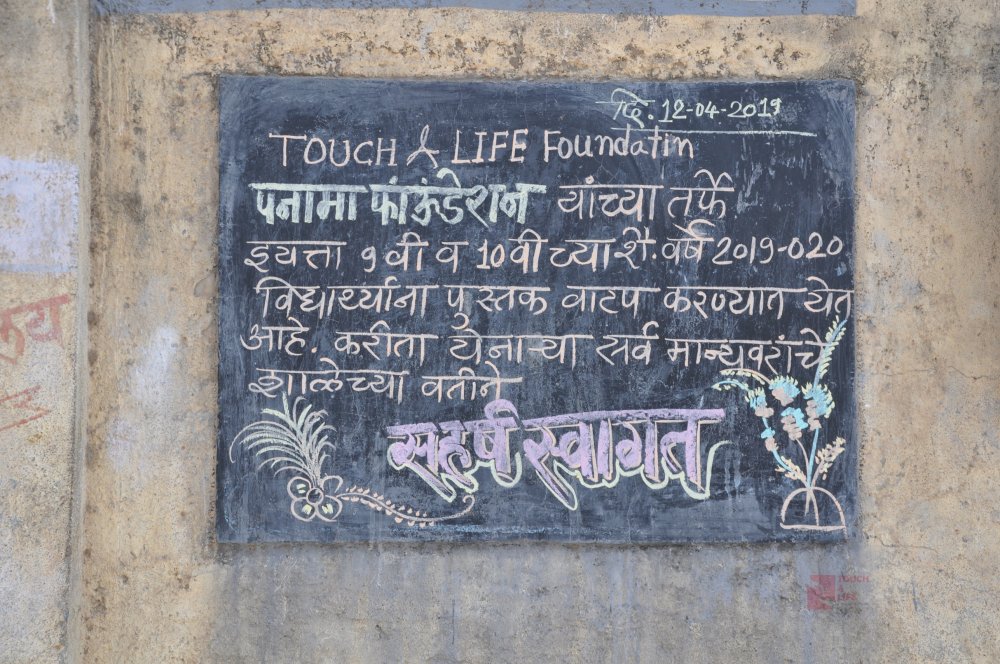 दि. 12-04-2019
TOUCH A LIFE Foundatin
पनामा फांऊंडेशन यांच्या तर्फे
इयत्ता 9वी व 10वी च्या शै. वर्ष 2019-020
विद्यार्थ्यांना पुस्तक वाटप करण्यात येत
आहे. करीता येनाऱ्या सर्व मान्यवरांचे
शाळेच्या वतीने
सहर्ष स्वागत
TOUCH
LIFE